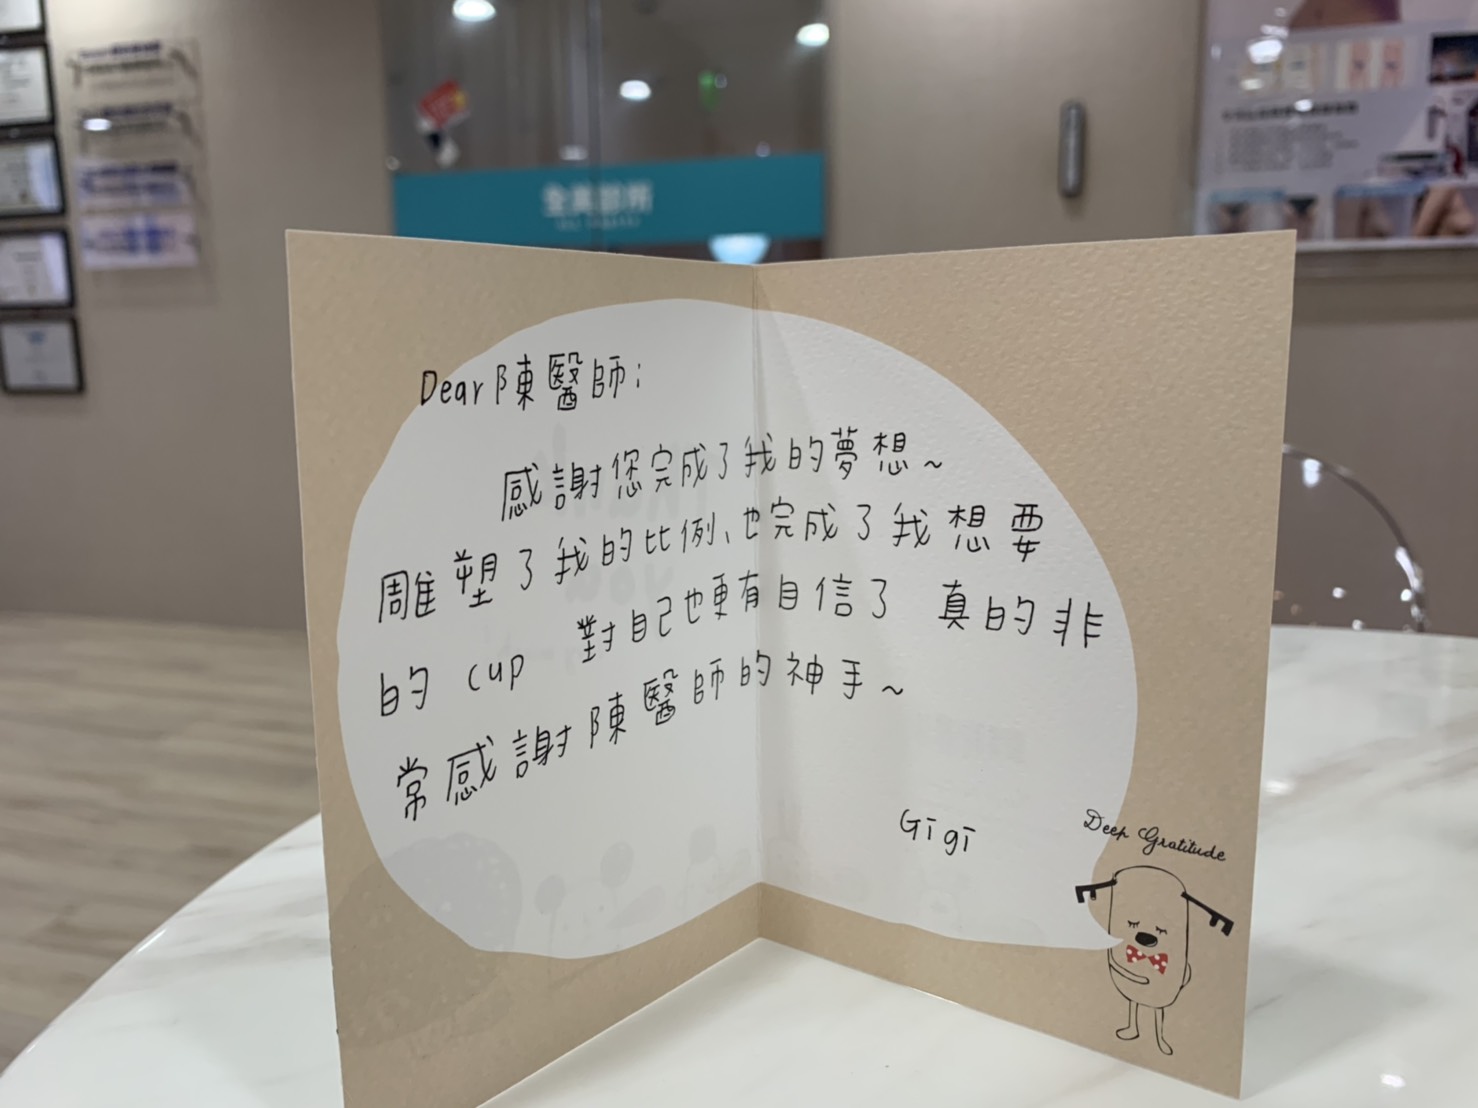 全美診所
Dear 陳醫師:
感謝您完成了我的夢想~
雕塑了我的比例、也完成了我想要
的 cup 對自己也更有自信了 真的非
常感謝陳醫師的神手~
Gigi
Deep Gratitude